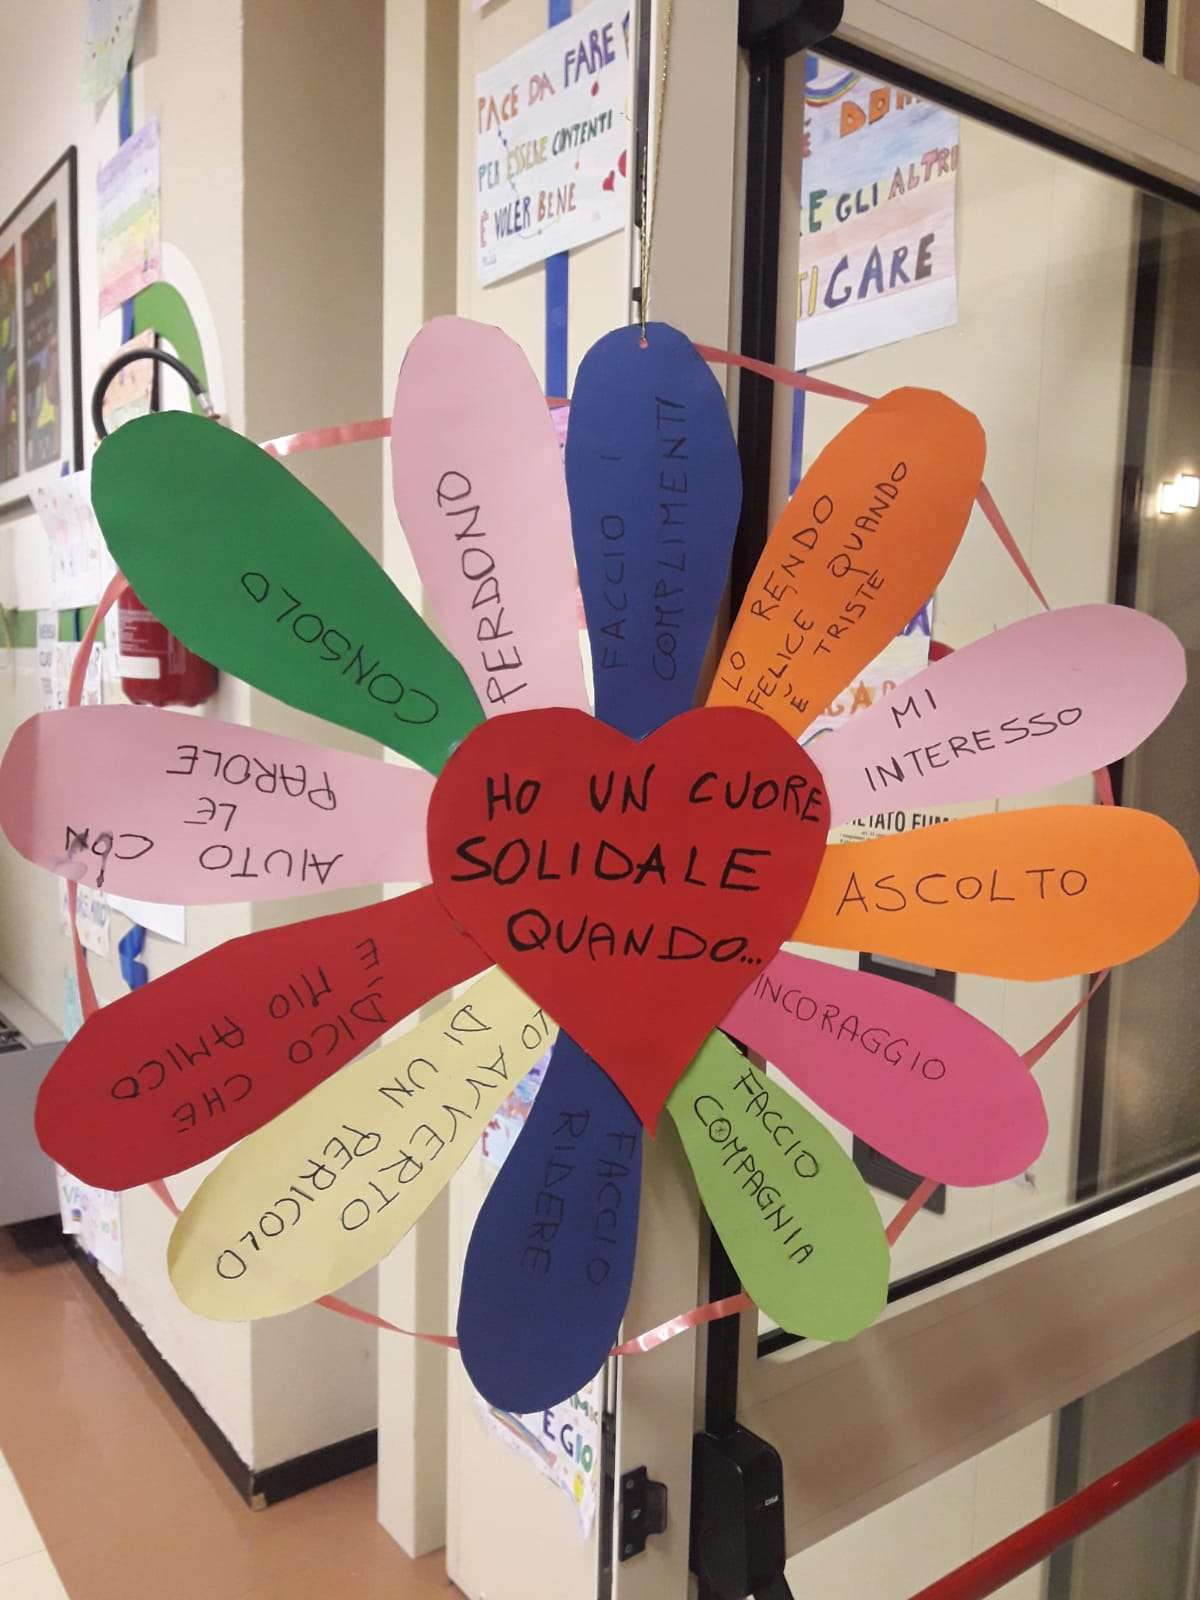 PACE DA FARE
PER ESSERE CONTENTI
È VOLER BENE
E GLI ALTRI
GARE
HO UN CUORE
SOLIDALE
QUANDO...
FACCIO I
COMPLIMENTI
LO RENDO
FELICE QUANDO
È TRISTE
MI
INTERESSO
ASCOLTO
INCORAGGIO
FACCIO
COMPAGNIA
FACCIO
RIDERE
LO AVVERTO
DI UN PERICOLO
DICO CHE
È MIO AMICO
AIUTO CON
LE
PAROLE
CONSOLO
PERDONO